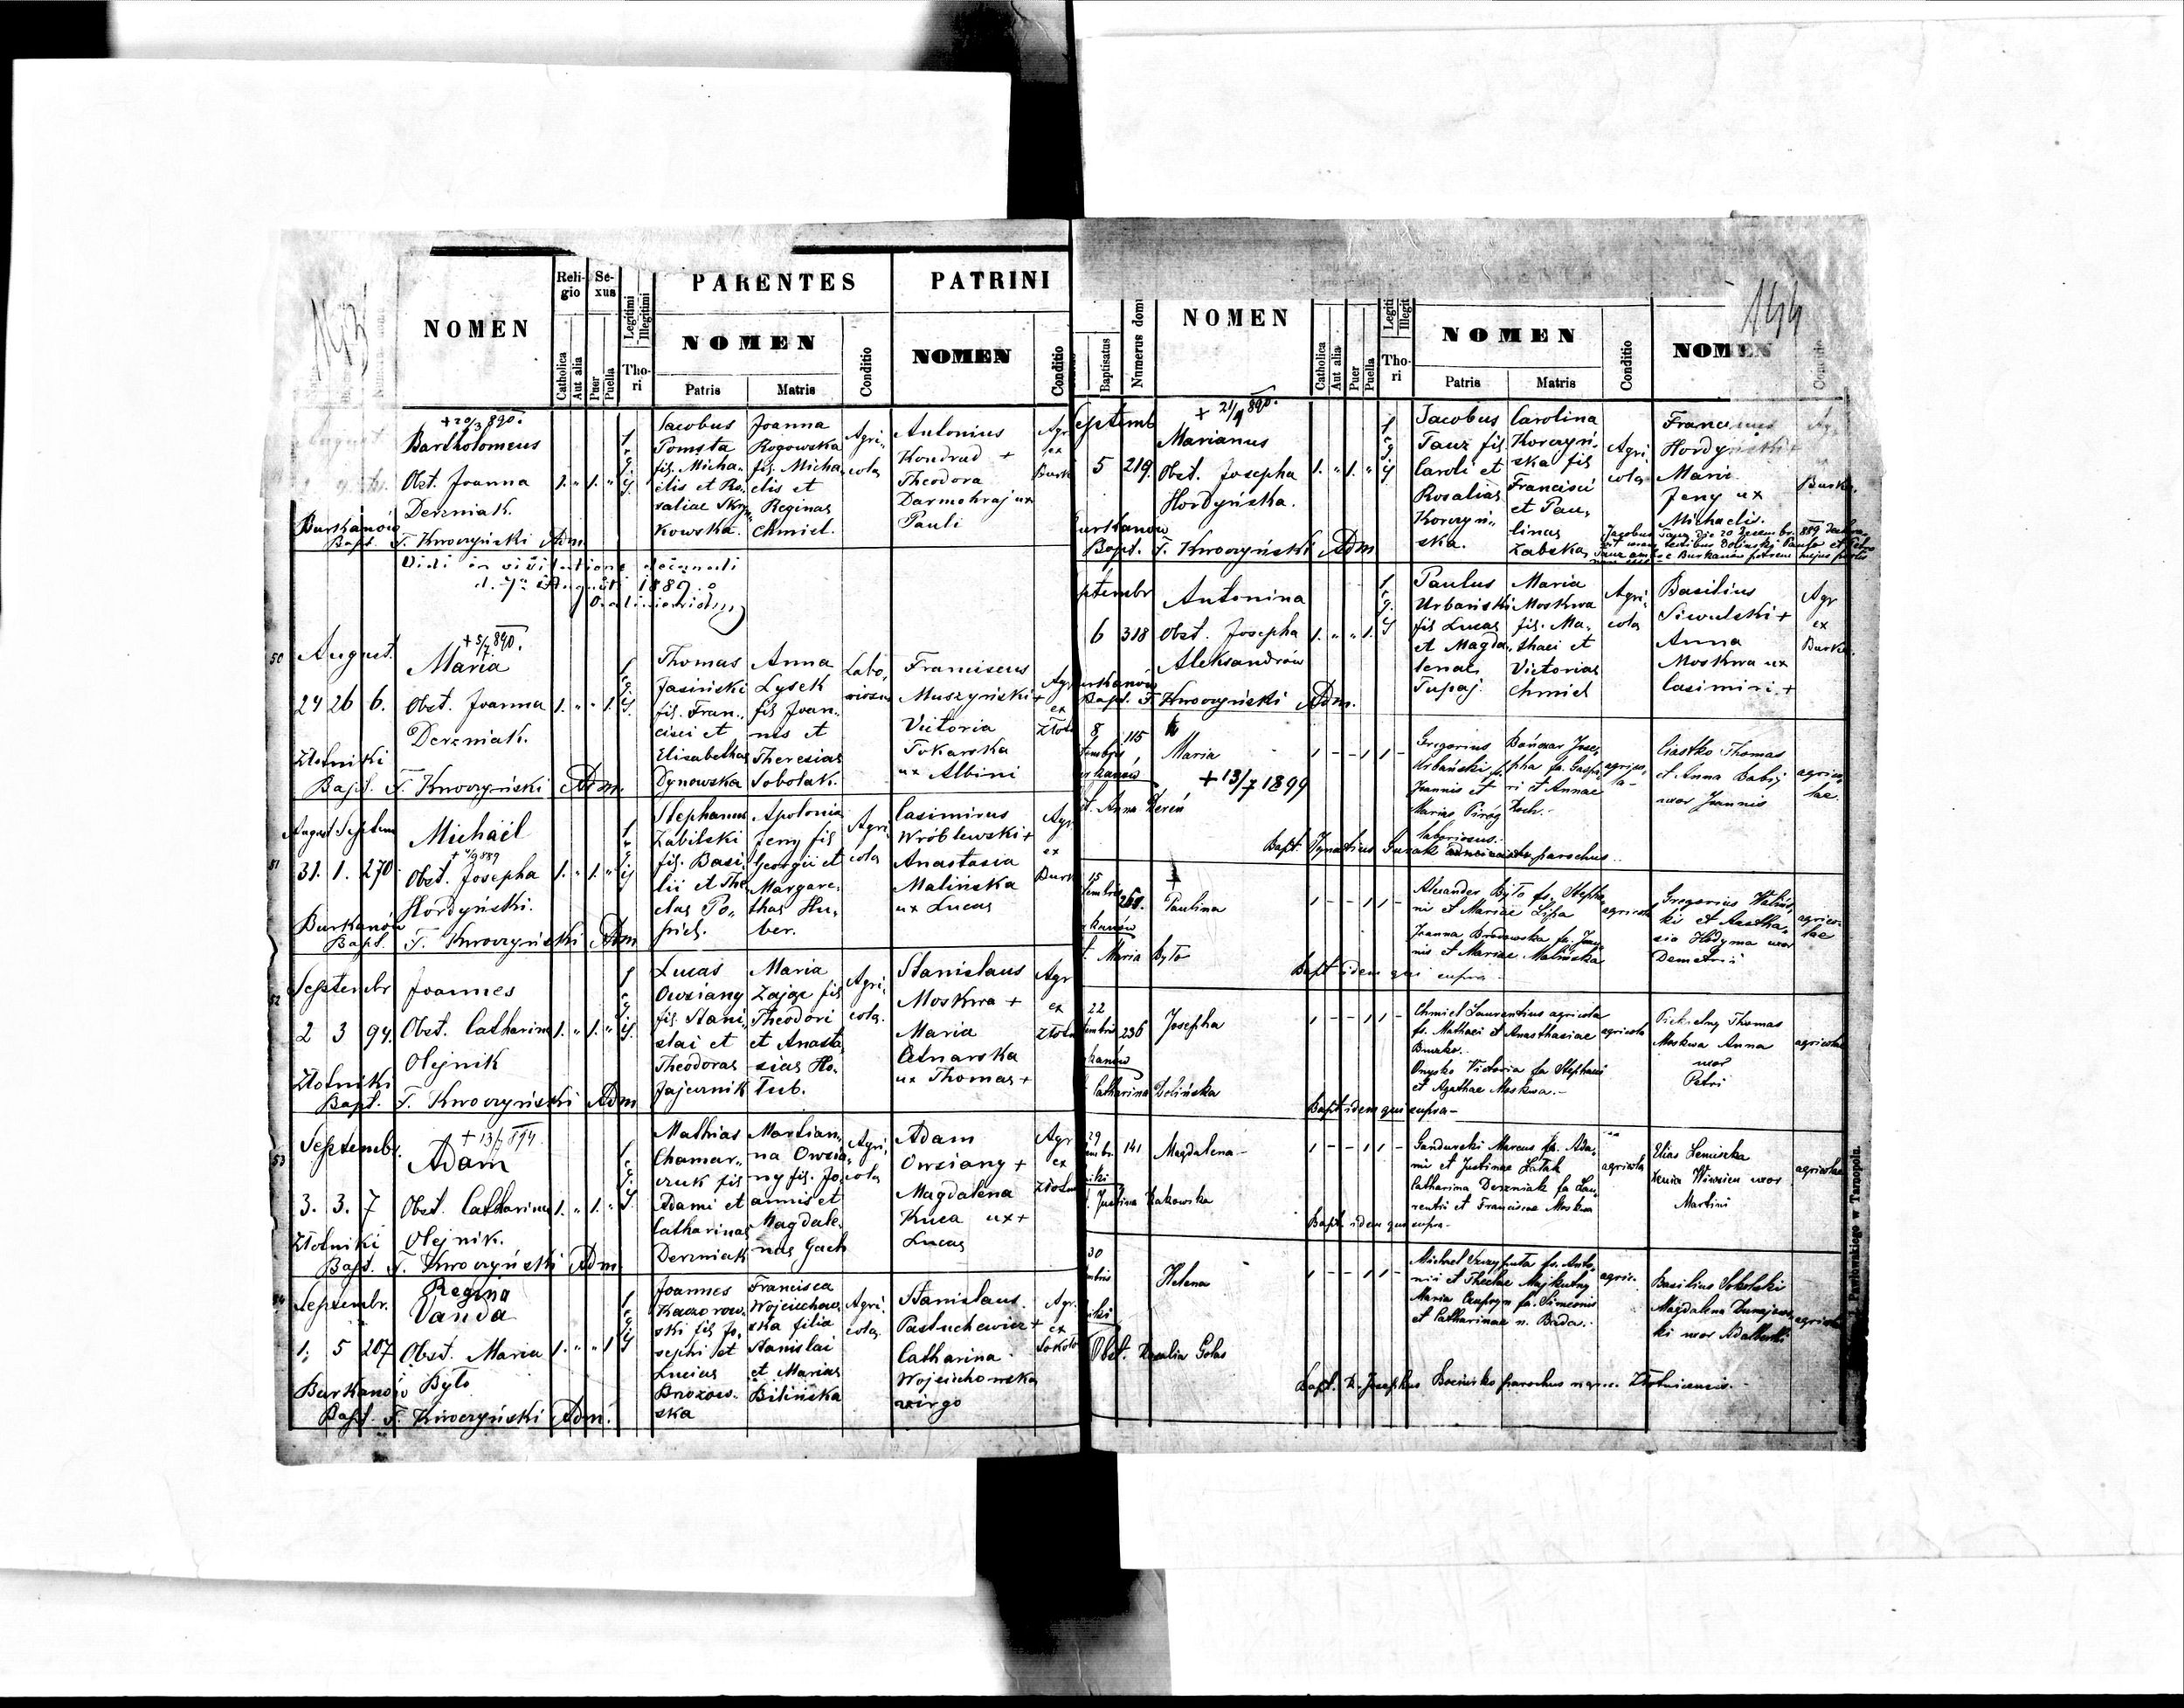 143
NOMEN
Reli-
gio
Se-
xus
Legitimi
Illegitimi
Tho-
ri
Catholica
Aut alia
Puer
Puella
PARENTES
NOMEN
Patris
Matris
Conditio
PATRINI
NOMEN
Conditio
August
+ 20/3 890.
Bartholomeus
Obst. Joanna
Derzniak.
Burkanów
Bapt. F. Kwoczyński Adm
1. " 1. "
Jacobus
Pomsta
fil. Micha-
elis et Ro-
saliae Skry-
kowska.
Joanna
Rogowska
fil. Micha
elis et
Reginae
Chmiel.
Agri-
cola
Antonius
Kondrad +
Theodora
Darmohraj ux
Pauli
Agr
ex
Burk
Vidi in visitatione decanali
1889
50
August.
24 26 6.
Złotniki
+ 5/7 890.
Maria
Obst. Joanna
Derzniak.
Bapt. F. Kwoczyński Adm.
1. " " 1.
Thomas
Jasiński
fil. Fran-
cisci et
Elisabethae
Dynowska
Anna
Lysek
fil Joan-
nis et
Theresiae
Sobolak.
Labo-
riosus
Franciscus
Muszyński +
Victoria
Tokarska
ux Albini
Agr
ex
Złotn
51
August Septem
31. 1. 270
Burkanów
Michaël
+ 4/9 889
Obst. Josepha
Hordyński.
Bapt. F. Kwoczyński Adm
1. " 1. "
Stephanus
Zabilski
fil. Basi-
lii et The
clae Po-
piel.
Apolonia
Jeny fil
Georgii et
Margare-
thae Hu-
ber.
Agri-
cola
Casimirus
Wróblewski +
Anastasia
Malińska
ux Lucae
Agr
ex
Burk
52
Septembr
2 3 94.
Złotniki
Joannes
Obst. Catharina
Olejnik
Bapt. F. Kwoczyński Adm
1. " 1. "
Lucas
Owsiany
fil. Stani-
slai et
Theodorae
Jajecznik
Maria
Zając fil
Theodori
et Anasta
siae Ho-
łub.
Agri-
cola.
Stanislaus
Moskwa +
Maria
Cetnarska
ux Thomae +
Agr
ex
Złotn
53
Septembr.
3. 3. 7
Złotniki
+ 13/7 894.
Adam
Obst. Catharina
Olejnik.
Bapt. F. Kwoczyński Adm
1. " 1. "
Mathias
Chamar-
czuk fil
Adami et
Catharinae
Derzniak
Martian-
na Owsia-
ny fil. Jo-
annis et
Magdale-
nae Gach
Agri-
cola
Adam
Owsiany +
Magdalena
Kuca ux +
Lucae
Agr
ex
Złotn
54
Septembr.
1. 5 207
Burkanów
Regina
Vanda
Obst. Maria
Byto
Bapt. F. Kwoczyński Adm.
1. " " 1
Joannes
Kaczorow-
ski fil Jo-
sephi et
Luciae
Brzozow-
ska
Francisca
Wojciechow-
ska filia
Stanislai
et Mariae
Bilińska
Agri-
cola
Stanislaus
Pastuchewicz +
Catharina
Wojciechowska
virgo
Agr.
ex
Sokołow
144
Baptisatus
Numerus domus
NOMEN
Catholica
Aut alia
Puer
Puella
Legiti
Illegit
Tho-
ri
NOMEN
Patris
Matris
Conditio
NOMEN
Septemb
5 219.
+ 21/4 890.
Marianus
Obst. Josepha
Hordyńska.
Burkanów
Bapt. F. Kwoczyński Adm
1. " 1. "
Jacobus
Tauz fil.
Caroli et
Rosaliae
Korczyń-
ska.
Carolina
Korczyń-
ska fil
Francisci
et Pau-
linae
Zabska
Agri-
cola
Franciscus
Hordyński +
Maria
Jeny ux
Michaelis.
Burk.
Septembr
6 318
Antonina
Obst. Josepha
Aleksandrów
Burkanów
Bapt. F. Kwoczyński Adm.
1. " " 1.
Paulus
Urbański
fil Lucae
et Magda-
lenae
Tupaj.
Maria
Moskwa
fil. Ma-
thaei et
Victoriae
Chmiel
Agri-
cola
Basilius
Siwulski +
Anna
Moskwa ux
Casimiri +
Agr
ex
Burk.
8 115
Maria
+ 13/7 1899
Obst. Anna Dereń
1 - - 1 1 -
Gregorius
Urbański f.
Joannis et
Mariae Piróg
laboriosus.
Bańczar Jose-
pha fa. Gaspa-
ri et Annae
Koch.
agrico-
la
Ciastko Thomas
et Anna Babij
uxor Joannis
agrico-
lae.
Bapt. Ignatius Guzak parochus.
15
268.
Paulina
Obst. Maria Byto
1 - - 1 1 -
Alexander Byto fs. Stepha-
ni et Mariae Lipa
Joanna Brodowska fa. Joan-
nis et Mariae Malińska
agricola
Gregorius Maliń-
ki et Anastha-
sia Hodyma uxor
Demetrii
agrico-
lae
Bapt idem qui supra
22
236
Josepha
Catharina Dolińska
1 - - 1 1 -
Chmiel Laurentius agricola
fs. Mathaei et Anasthasiae
Burzko.
Onysko Victoria fa Stephani
et Agathae Moskwa.
agricola
Piekielny Thomas
Moskwa Anna
uxor
Petri
agricolae
Bapt idem qui supra-
29
141
Magdalena
Justina Zakowska
1 - - 1 1 -
Gandurski Marcus fs. Ada-
mi et Justinae Latak
Catharina Derzniak fa Lau-
rentii et Franciscae Moskwa
agricola
Elias Semiszka
Xenia Winsien uxor
Martini
agricolae
Bapt. idem qui supra-
30
Helena
Obst. Rosalia Golas
1 - - 1 1 -
fs. Anto-
nii et Theclae Majkutny
Maria fa. Simeonis
et Catharinae n. Bada.
agric.
Basilius Sokolski
Magdalena Dunajews-
ki uxor Adalberti
agricolae
Bapt. Josephus parochus Złotnicensis.
J. Pawłowskiego w Tarnopolu.